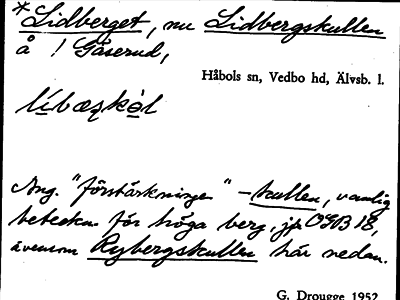 *Lidberget, nu Lidbergskullen
å 1 Gåserud,
Håbols sn, Vedbo hd, Älvsb. l.
Ang. "förstärkningen" -kullen, vanlig
beteckn. för höga berg, jfr OGB 18,
ävensom Rybergskullen här nedan.
G. Drougge 1952